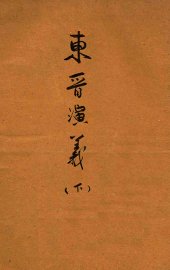 東晉演義(下)